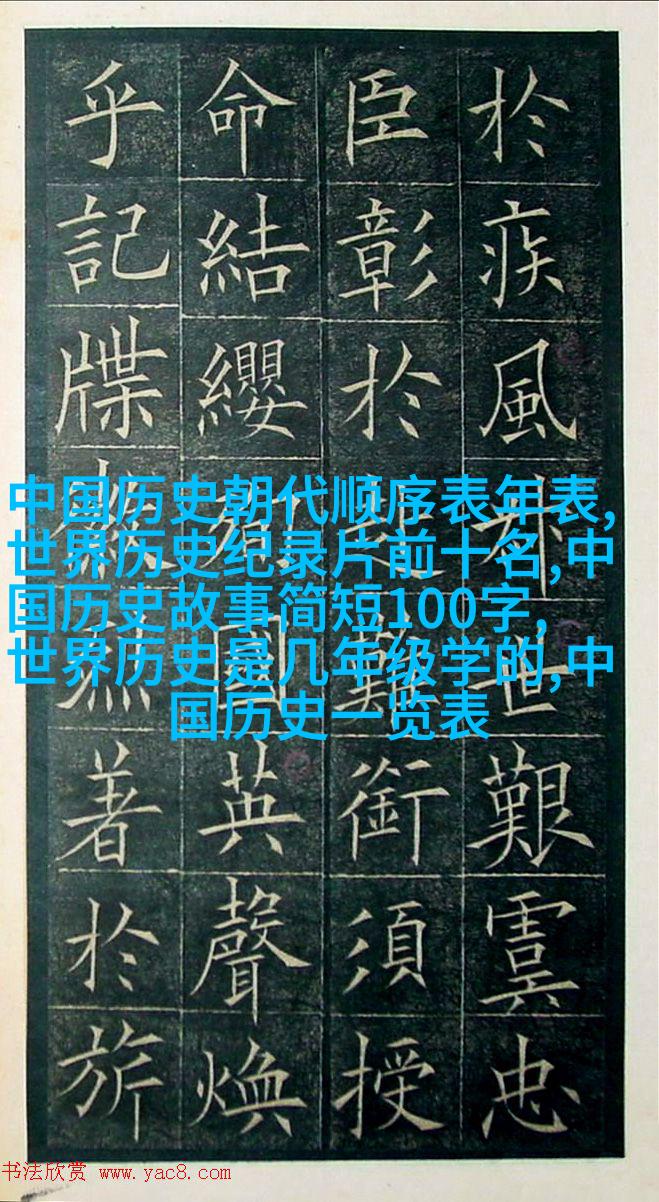 於疾風世艱虞忠
臣彰於難銜須授
命結纓國英聲煥
乎記牒著於旂
中国历史朝代顺序表年表,
世界历史纪录片前十名,中
国历史故事简短100字,
世界历史是几年级学的,中
国历史一览表
书法欣赏 www.yac8.com